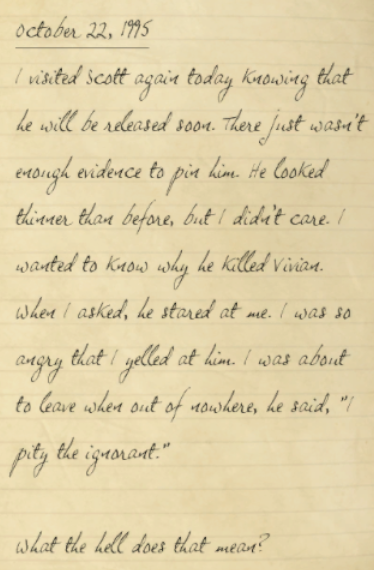 October 22, 1995
I visited Scott again today knowing that
he will be released soon. There just wasn't
enough evidence to pin him. He looked
thinner than before, but I didn't care. I
wanted to know why he killed Vivian.
When I asked, he stared at me. I was so
angry that I yelled at him. I was about
to leave when out of nowhere, he said, "I
pity the ignorant."
What the hell does that mean?